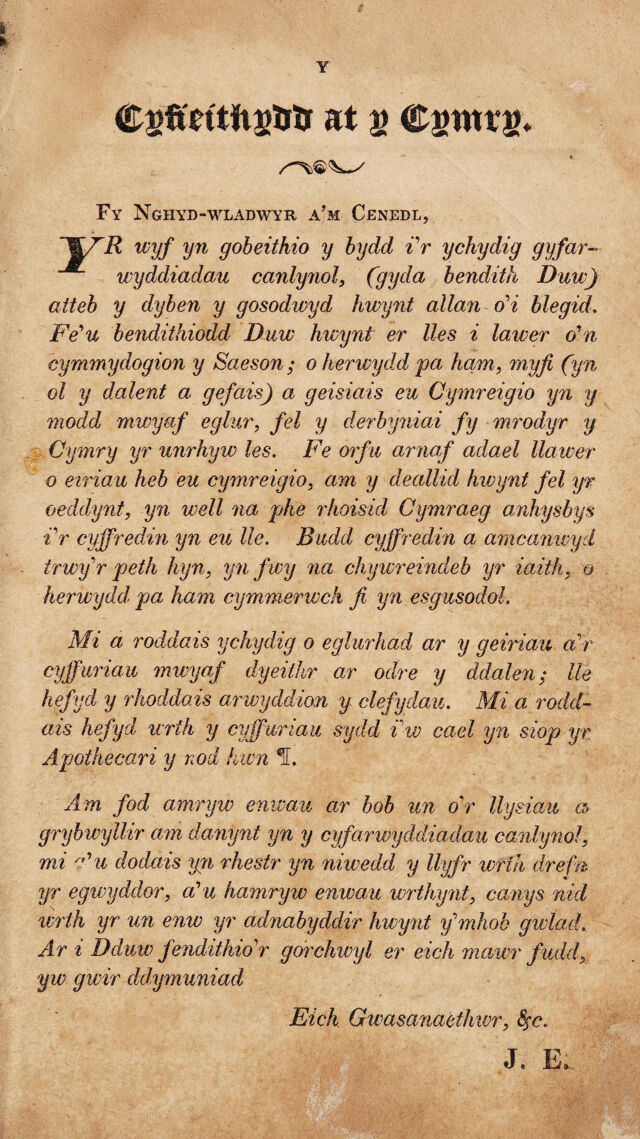 Y
Cyfieithydd at y Cymry.
Fy Nghyd-wladwyr a'm Cenedl,
YR wyf yn gobeithio y bydd i'r ychydig gyfar-
wyddiadau canlynol, (gyda bendith Duw)
atteb y dyben y gosodwyd hwynt allan o'i blegid.
Fe'u bendithiodd Duw hwynt er lles i lawer o'n
cymmydogion y Saeson; o herwydd pa ham, myfi (yn
ol y dalent a gefais) a geisiais eu Cymreigio yn y
modd mwyaf eglur, fel y derbyniai fy mrodyr y
Cymry yr unrhyw les. Fe orfu arnaf adael llawer
o eiriau heb eu cymreigio, am y deallid hwynt fel yr
oeddynt, yn well na phe rhoisid Cymraeg anhysbys
i'r cyffredin yn eu lle. Budd cyffredin a amcanwyd
trwy'r peth hyn, yn fwy na chywreindeb yr iaith, o
herwydd pa ham cymmerwch fi yn esgusodol.
Mi a roddais ychydig o eglurhad ar y geiriau a'r
cyffuriau mwyaf dyeithr ar odre y ddalen; lle
hefyd y rhoddais arwyddion y clefydau. Mi a rodd-
ais hefyd wrth y cyffuriau sydd i'w cael yn siop yr
Apothecari y nod hwn ¶.
Am fod amryw enwau ar bob un o'r llysiau a
grybwyllir am danynt yn y cyfarwyddiadau canlynol,
mi a'u dodais yn rhestr yn niwedd y llyfr wrth drefn
yr egwyddor, a'u hamryw enwau wrthynt, canys nid
wrth yr un enw yr adnabyddir hwynt y'mhob gwlad.
Ar i Dduw fendithio'r gorchwyl er eich mawr fudd,
yw gwir ddymuniad
Eich Gwasanaethwr, &c.
J. E.